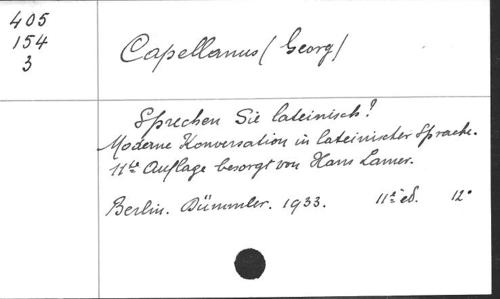 405
154
3
Capellanus (Georg)
Sprechen Sie lateinisch?
Moderne Konversation in lateinischer Sprache.
11te Auflage besorgt von Hans Lamer.
Berlin. Dümmler. 1933. 11e éd. 12°